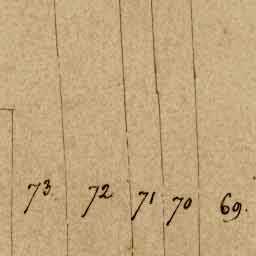 73. 72 71 70 69.